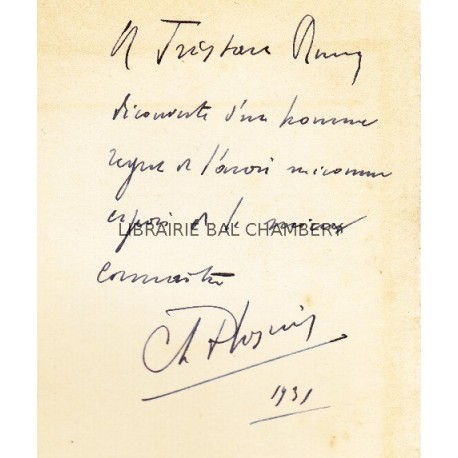 A Tristan Rémy
découverte d'un homme
regret de l'avoir méconnu
espoir de le mieux
LIBRAIRIE BAL CHAMBERY
connaître
1931